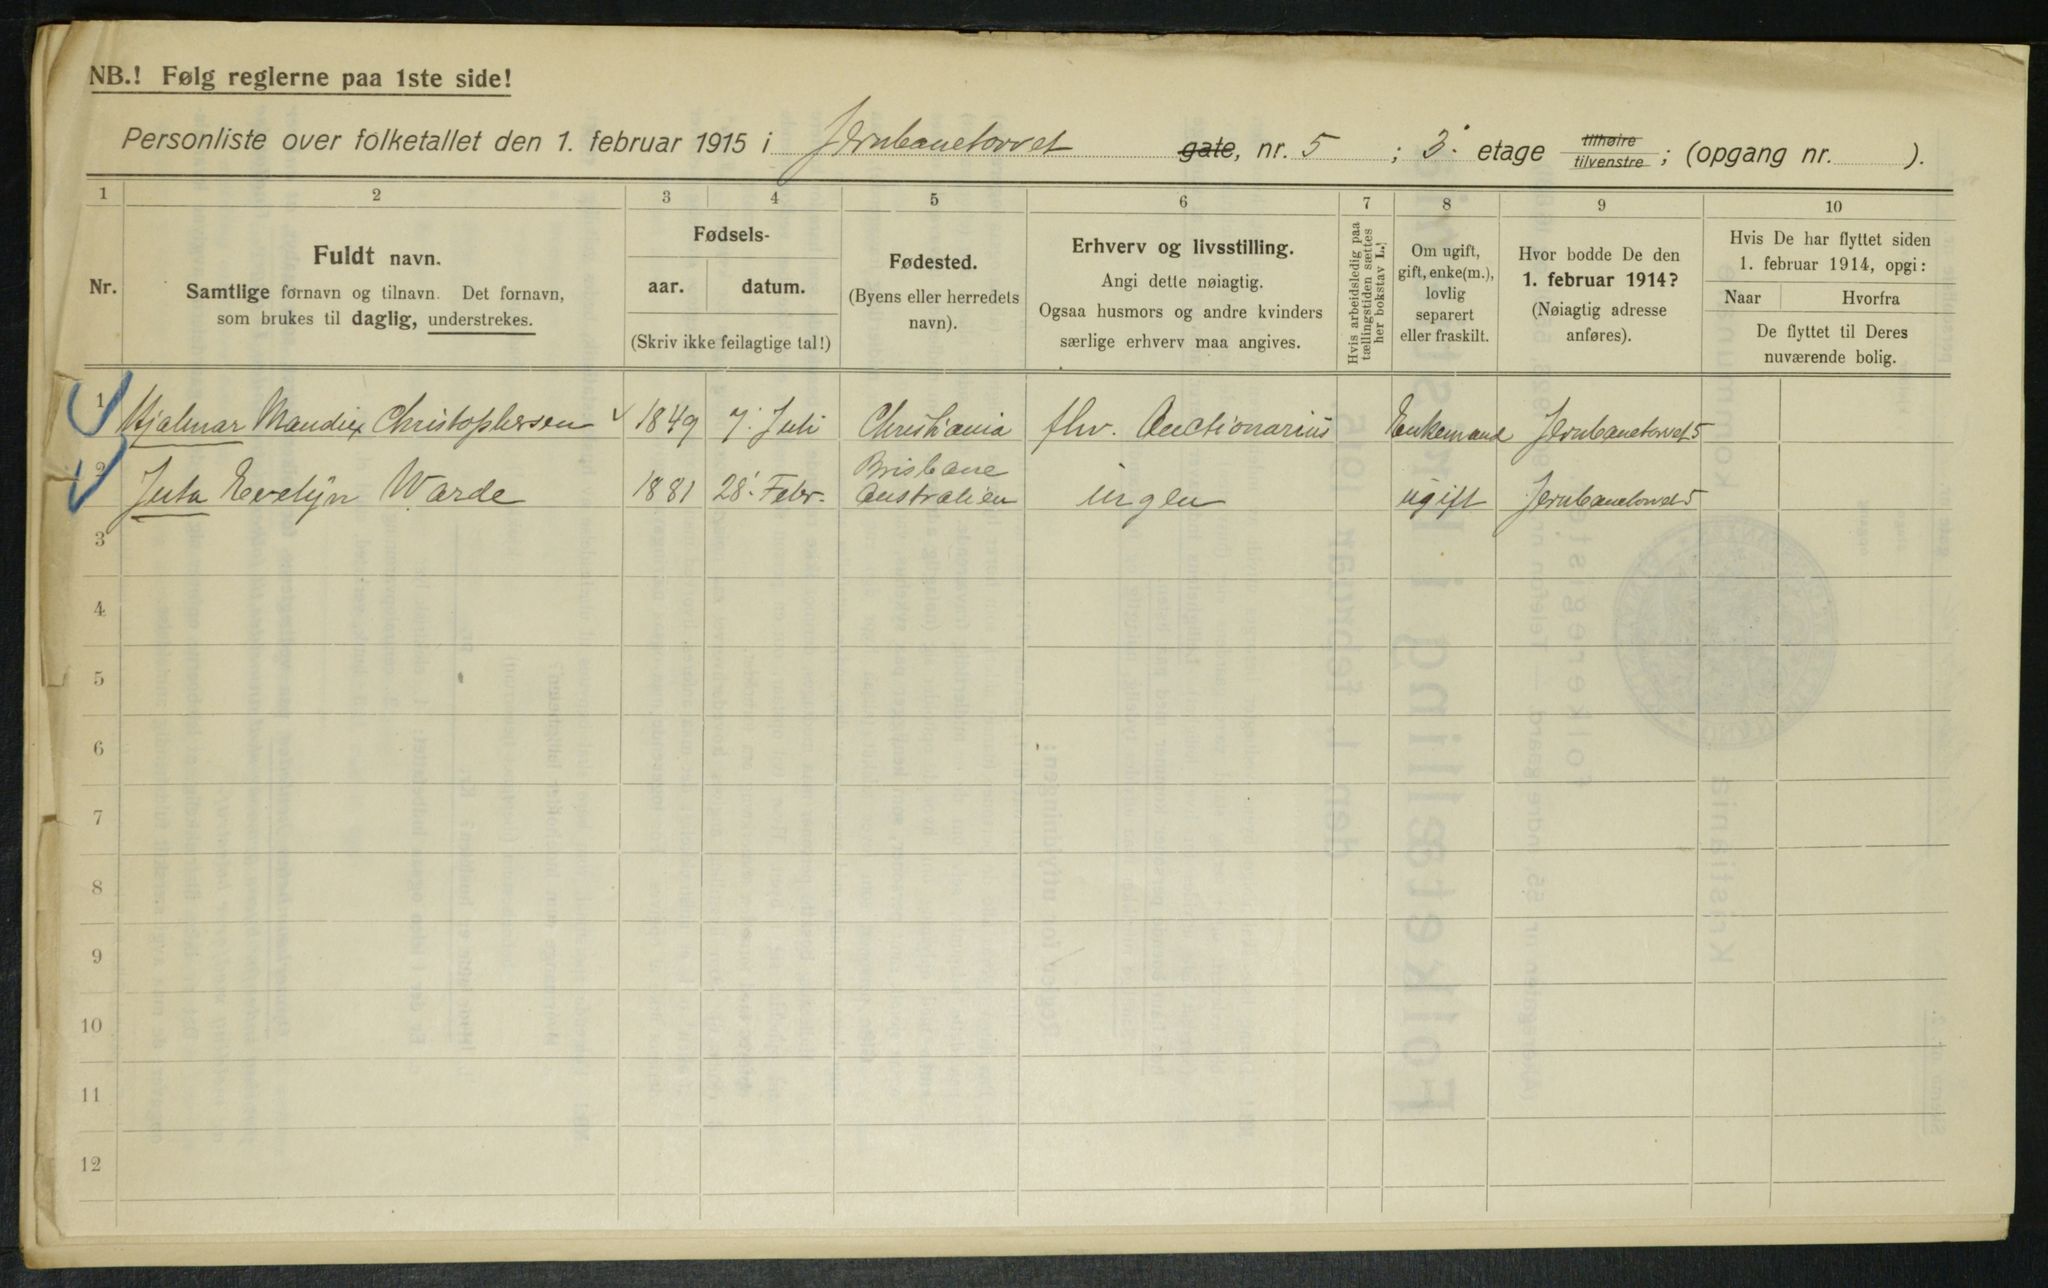 NB.! Følg reglerne paa 1ste side!
Personliste over folketallet den 1. februar 1915 i Jernbanetorvet gate, nr. 5 ; 3. etage tilhøire tilvenstre ; (opgang nr. ).
1 2 3 4 5 6 7 8 9 10
Nr.
Fuldt navn.
Samtlige fornavn og tilnavn. Det fornavn,
som brukes til daglig, understrekes.
Fødsels-
aar. datum.
(Skriv ikke feilagtige tal!)
Fødested.
(Byens eller herredets
navn).
Erhverv og livsstilling.
Angi dette nøiagtig.
Ogsaa husmors og andre kvinders
særlige erhverv maa angives.
Hvis arbeidsledig paa
tællingstiden sættes
her bokstav L.!
Om ugift,
gift, enke(m.),
lovlig
separert
eller fraskilt.
Hvor bodde De den
1. februar 1914?
(Nøiagtig adresse
anføres).
Hvis De har flyttet siden
1. februar 1914, opgi:
Naar Hvorfra
De flyttet til Deres
nuværende bolig.
1 Hjalmar Mandix Christophersen 1849 7. Juli Christiania fhv. Auctionarius Enkemand Jernbanetorvet 5
2 Juta Evelyn Warde 1881 28. Febr. Brisbane Australien ingen ugift Jernbanetorvet 5
3
4
5
6
7
8
9
10
11
12